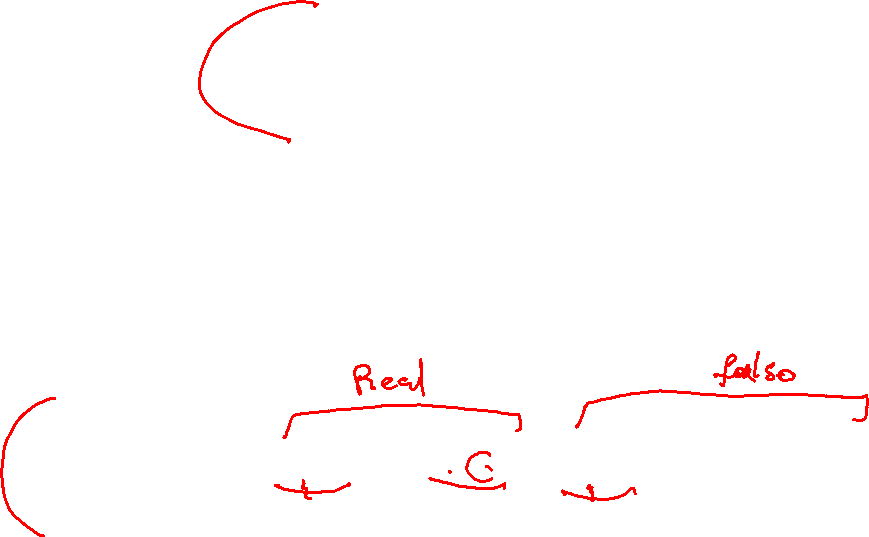 Real falso